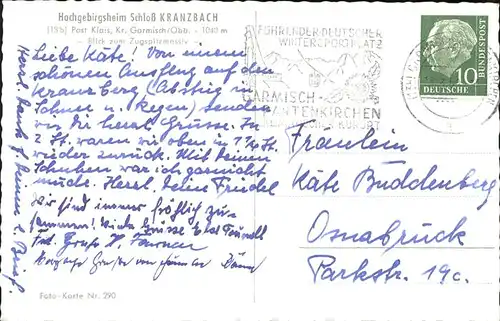 Hochgebirgsheim Schloß KRANZBACH
(13b) Post Klais, Kr. Garmisch/Obb. - 1040 m
Blick zum Zugspitzmassiv
Liebe Käte! Von einem
schönen Ausflug auf den
Kranzberg (Abstieg in
Schnee u. Regen) senden
wir Dir herzl. Grüsse. In
2 St. waren wir oben in 1 ¾ St.
wieder zurück. Mit deinen
Schuhen war ich garnicht
müde. Herzl. Deine Friedel
Wir sind immer fröhlich zu-
sammen! Viele Grüsse
Herzl. Dank f. Deinen l. Brief
Foto-Karte Nr. 290
FÜHRENDER DEUTSCHER
WINTERSPORTPLATZ
GARMISCH-
PARTENKIRCHEN
KURORT
DEUTSCHE
BUNDESPOST
10
Fräulein
Käte Buddenberg
Osnabrück
Parkstr. 19c.